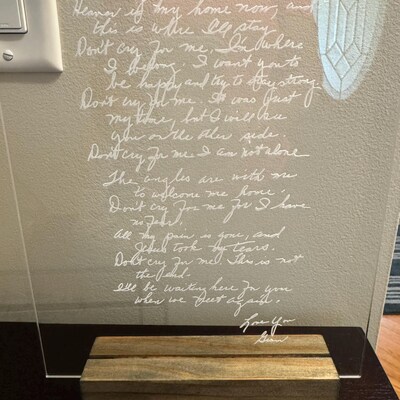 Heaven is my home now, and
this is where I'll stay
Don't cry for me. I'm where
I belong. I want you to
be happy and try to stay strong.
Don't cry for me. It was just
my time, but I will see
you on the other side.
Don't cry for me I am not alone
The angles are with me
to welcome me home.
Don't cry for me for I have
no fear.
All my pain is gone, and
Jesus took my tears.
Don't cry for me This is not
the end.
I'll be waiting here for you
when we meet again.
Love You